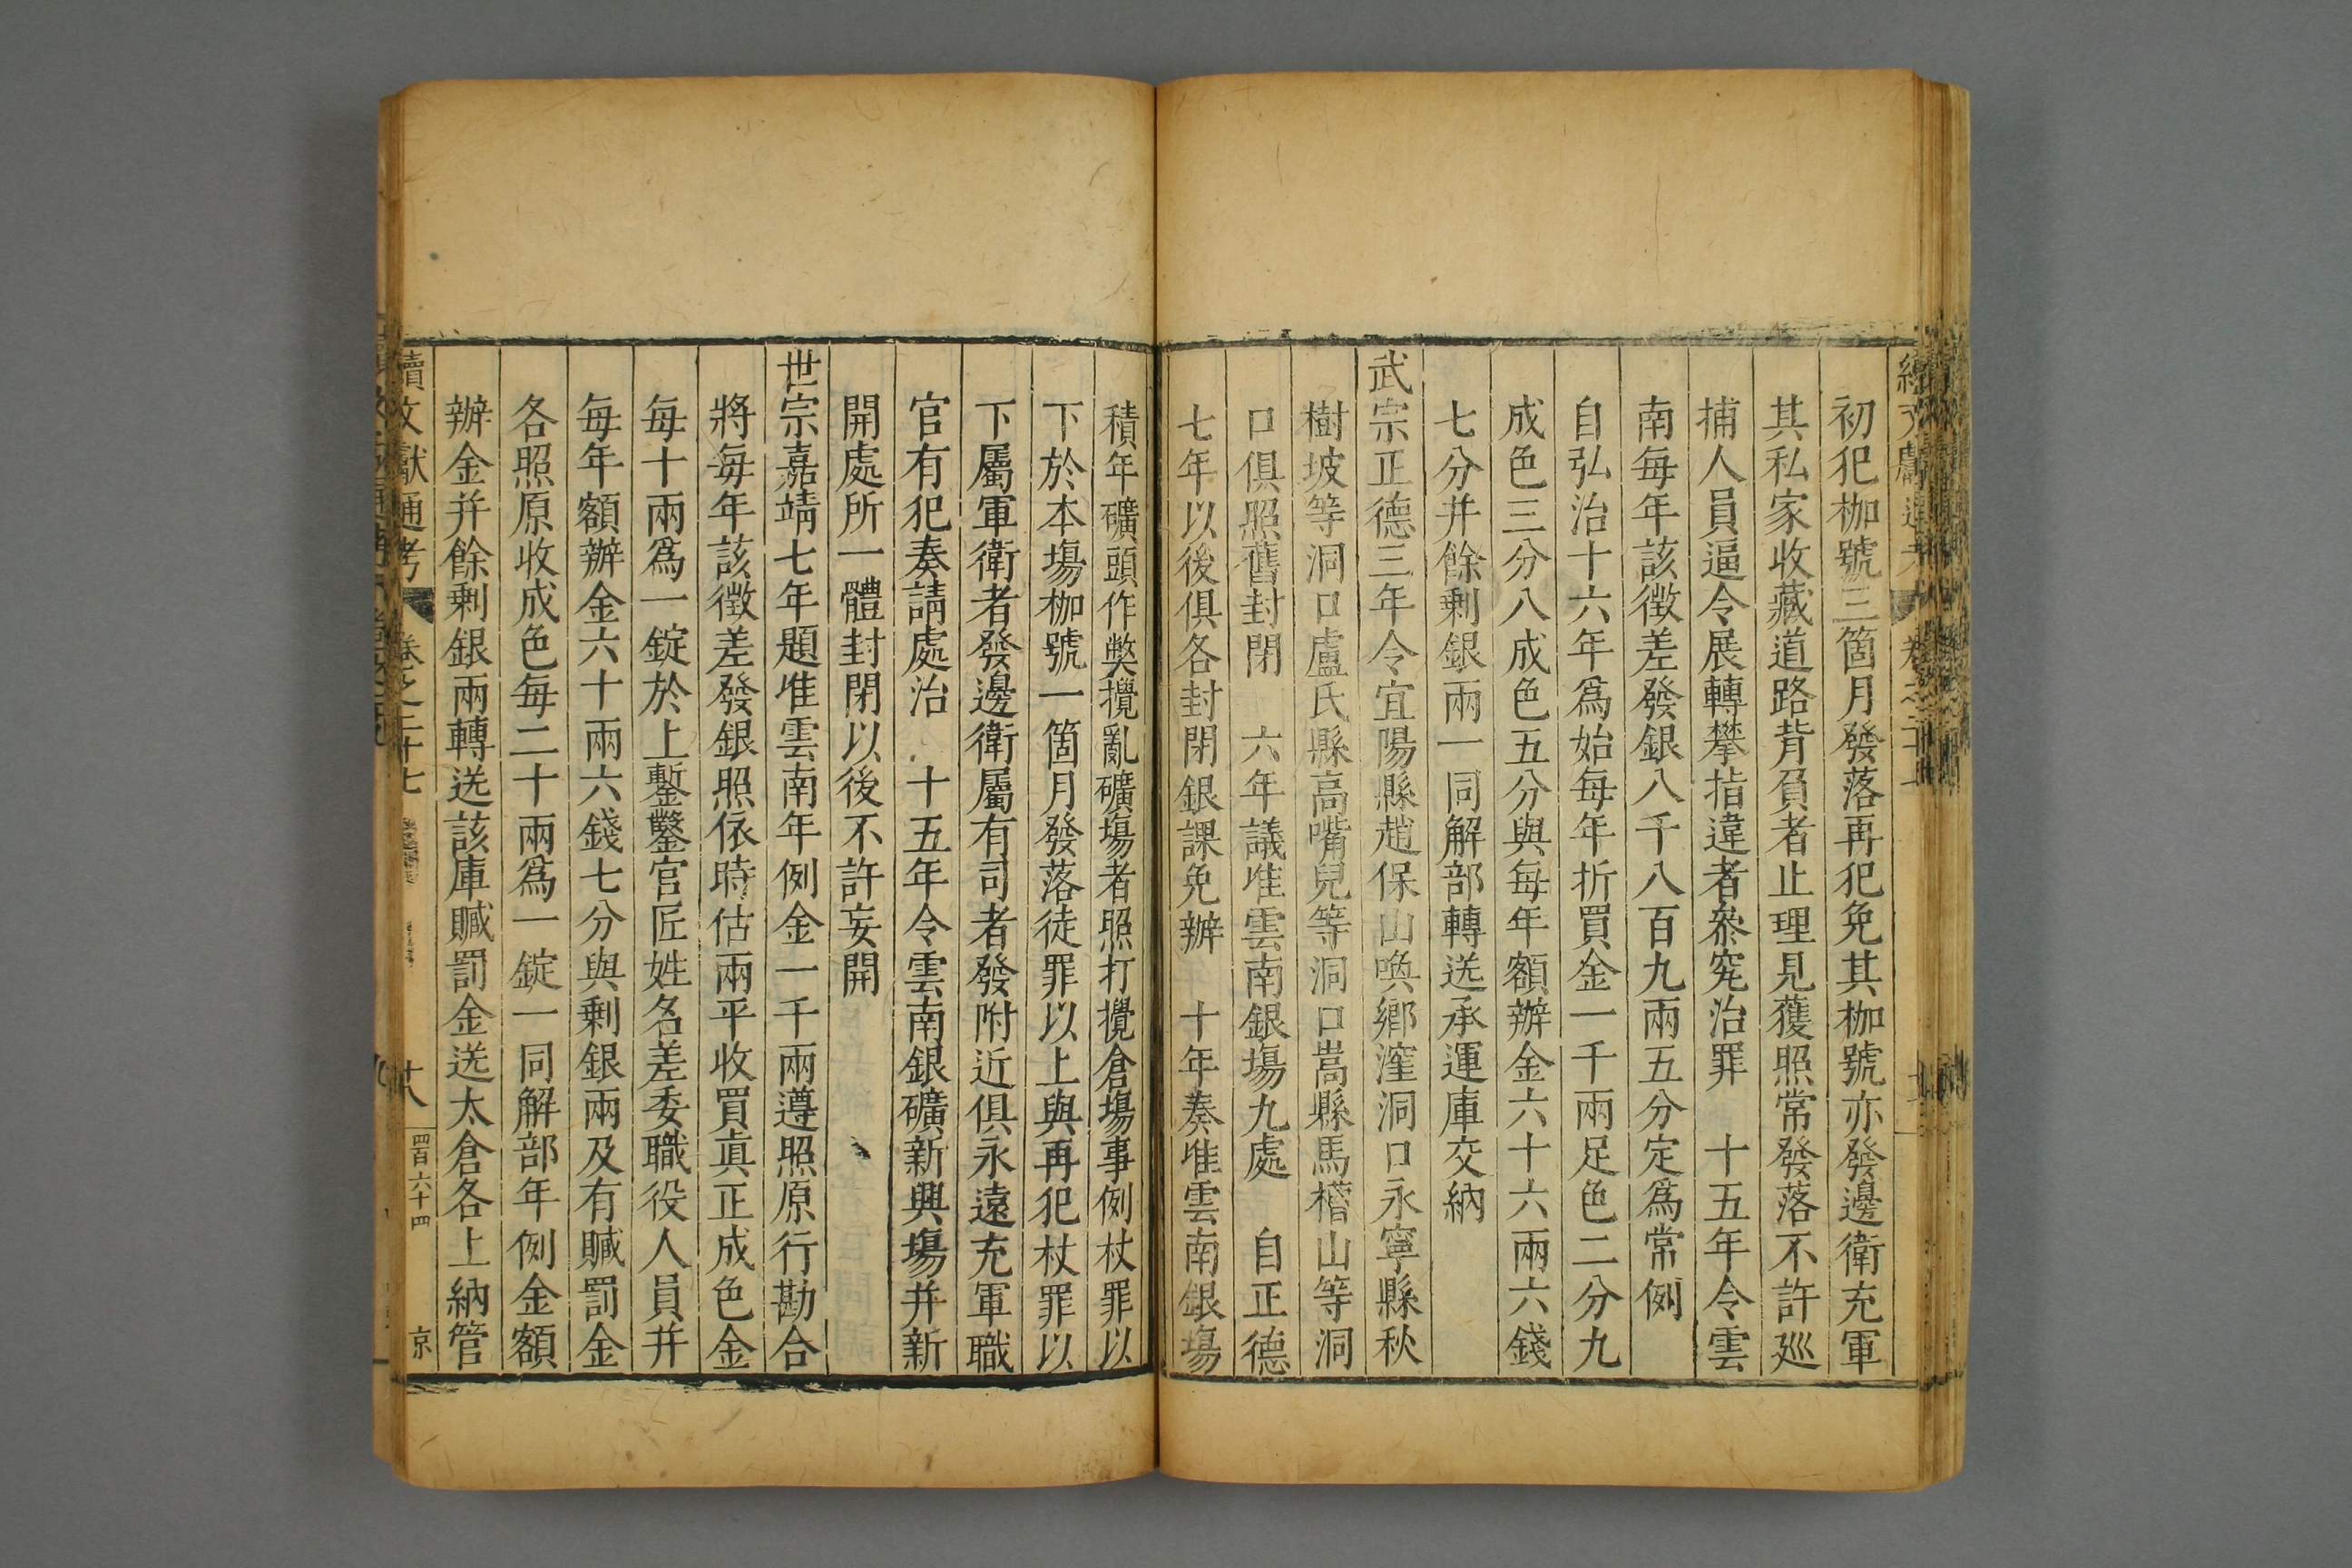 初犯枷號三箇月發落再犯免其枷號亦發邊衛充軍
其私家收藏道路背負者止理見獲照常發落不許廵
捕人員逼令展轉攀指違者叅究治罪　十五年令雲
南每年該徵差發銀八千八百九兩五分定爲常例
自弘治十六年爲始每年折買金一千兩足色二分九
成色三分八成色五分與每年額辦金六十六兩六錢
七分并餘剩銀兩一同解部轉送承運庫交納
武宗正德三年令宜陽縣趙保山喚鄉漥洞口永寧縣秋
樹坡等洞口盧氏縣高嘴兒等洞口嵩縣馬槽山等洞
口俱照舊封閉　六年議准雲南銀場九處　自正德
七年以後俱各封閉銀課免辦　十年奏准雲南銀場
積年礦頭作獘攪亂礦場者照打攪倉場事例杖罪以
下於本場枷號一箇月發落徒罪以上與再犯杖罪以
下屬軍衛者發邊衛屬有司者發附近俱永遠充軍職
官有犯奏請處治　十五年令雲南銀礦新興場并新
開處所一體封閉以後不許妄開
世宗嘉靖七年題准雲南年例金一千兩遵照原行勘合
將每年該徵差發銀照依時估兩平收買眞正成色金
每十兩爲一錠於上鏨鑿官匠姓名差委職役人員并
每年額辦金六十兩六錢七分與剩銀兩及有贓罰金
各照原收成色每二十兩爲一錠一同解部年例金額
辦金并餘剩銀兩轉送該庫贓罰金送太倉各上納管
續文獻通考　卷之二十七　十八　四百六十四　京